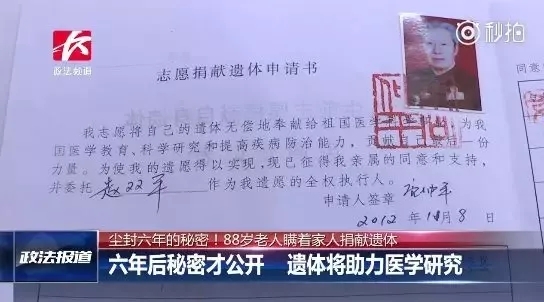 政法频道
秒拍
志愿捐献遗体申请书
我志愿将自己的遗体无偿地奉献给祖国医学 为我
国医学教育、科学研究和提高疾病防治能力, 贡献自己最后一份
力量。为使我的遗愿得以实现,现已征得我亲属的同意和支持,
并委托 赵双军 作为我遗愿的全权执行人。
申请人签章
2012年11月8日
同意
尘封六年的秘密!88岁老人瞒着家人捐献遗体
政法报道
六年后秘密才公开 遗体将助力医学研究